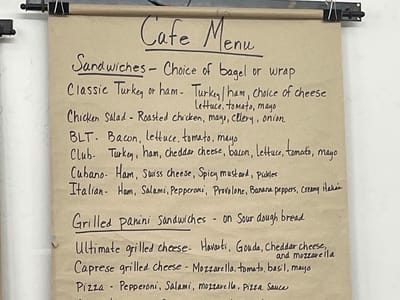 Cafe Menu
Sandwiches - Choice of bagel or wrap
Classic Turkey or ham - Turkey/ham, choice of cheese
lettuce, tomato, mayo
Chicken Salad - Roasted chicken, mayo, celery, onion
BLT - Bacon, lettuce, tomato, mayo
Club - Turkey, ham, cheddar cheese, bacon, lettuce, tomato, mayo
Cubano - Ham, Swiss cheese, Spicy mustard, Pickles
Italian - Ham, Salami, Pepperoni, Provolone, Banana peppers, Creamy Italian
Grilled panini sandwiches - on Sour dough bread
Ultimate grilled cheese - Havarti, Gouda, Cheddar cheese,
and mozzarella
Caprese grilled cheese - Mozzarella, tomato, basil, mayo
Pizza - Pepperoni, Salami, mozzarella, pizza sauce